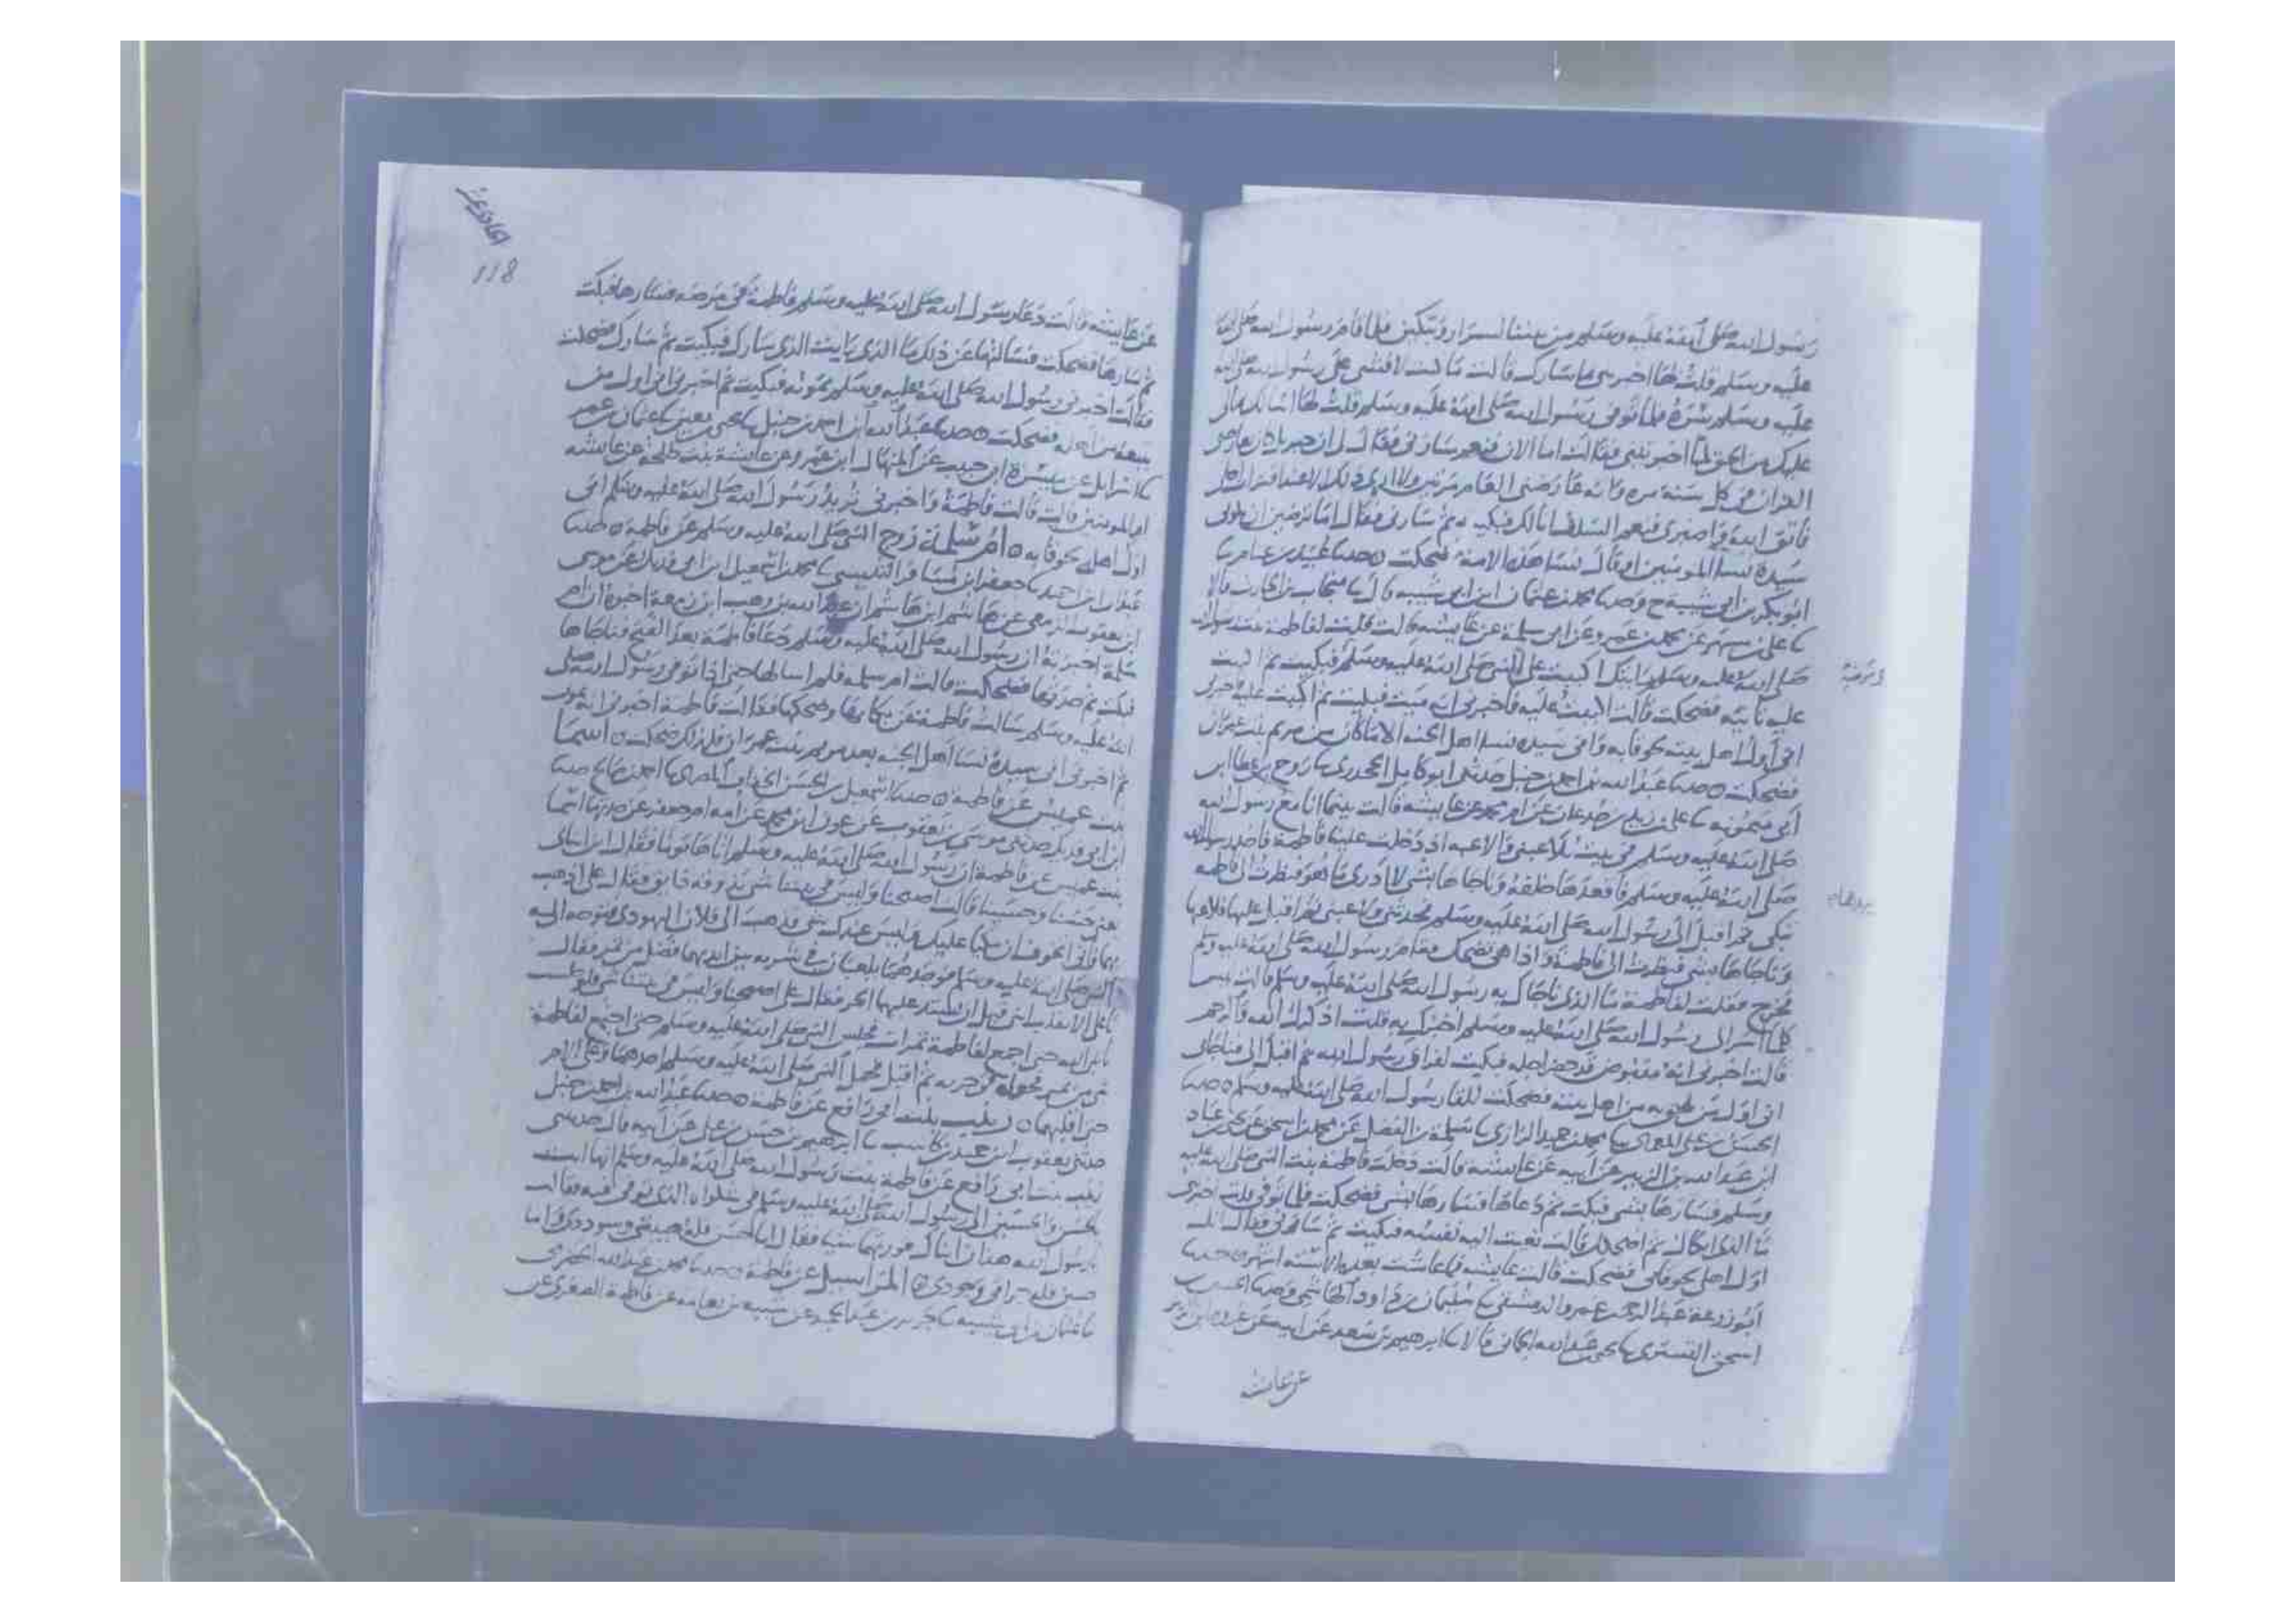 رسول الله صلى الله عليه وسلم من بيننا بالسرار وتبكين فلما قام رسول الله صلى الله
عليه وسلم قلت لها اخبريني ما سارك قالت ما كنت لافشي على رسول الله صلى الله
عليه وسلم سره فلما توفي رسول الله صلى الله عليه وسلم قلت لها اسالك بمالي
عليك من الحق لما اخبرتيني فقالت اما الان فنعم سارني فقال لي ان جبريل كان يعارضني
القران في كل سنة مرة وانه عارضني العام مرتين ولا ارى ذلك الا عند اقتراب اجل
فاتقي الله واصبري فنعم السلف انا لك فبكيت ثم سارني فقال اما ترضين ان تكوني
سيدة نسا المومنين او قال نسا هذه الامة فضحكت ه حدثنا عبيد بن غنام ثنا
ابو بكر بن ابي شيبة ح وحدثنا محمد بن عثمان ابن ابي شيبة قال ثنا منجاب بن الحارث قالا
ثنا علي بن مسهر عن محمد بن عمرو عن ابي سلمة عن عايشه قالت قلت لفاطمة بنت رسول الله
صلى الله عليه وسلم رايتك اكببت على النبي صلى الله عليه وسلم فبكيت ثم اكببت
عليه ثانية فضحكت قالت اكببت عليه فاخبرني انه ميت فبكيت ثم اكببت عليه فاخبرني
اني اول اهل بيته لحوقا به واني سيدة نسا اهل الجنه الا ما كان من مريم بنت عمران
فضحكت ه حدثنا عبد الله بن احمد بن حنبل حدثني ابو كامل الجحدري ثنا روح بن عطا ابن
ابي ميمونه ثنا علي بن زيد بن جدعان عن ام محمد عن عايشه قالت بينما انا مع رسول الله
صلى الله عليه وسلم في بيت يلاعبني والاعبه اذ دخلت علينا فاطمة فاخذ رسول الله
صلى الله عليه وسلم فاقعدها خلفه وناجاها بشي لا ادري ما هو فنظرت الى فاطمه
تبكي ثم اقبل الي رسول الله صلى الله عليه وسلم فحدثني ولاعبني ثم اقبل عليها فلاعبها
وناجاها بشي فنظرت الى فاطمة واذا هي تضحك فقام رسول الله صلى الله عليه وسلم
فخرج فقلت لفاطمة ما الذي ناجاك به رسول الله صلى الله عليه وسلم قالت ليس
كلما اسر الي رسول الله صلى الله عليه وسلم اخبرك به قلت اذكرك الله والرحم
قالت اخبرني انه مقبوض قد حضر اجله فبكيت لفراق رسول الله ثم اقبل الي فناجاني
اني اول من لحق به من اهل بيته فضحكت للقا رسول الله صلى الله عليه وسلم ه حدثنا
الحسن بن علي المعمري ثنا محمد بن حميد الرازي ثنا سلمة بن الفضل عن محمد بن اسحق عن يحيى بن عباد
ابن عبد الله بن الزبير عن ابيه عن عايشه قالت دخلت فاطمة بنت النبي صلى الله عليه
وسلم فسارها بشي فبكت ثم دعاها فسارها بشي فضحكت فلما توفي قلت اخبري
ما الذي ابكاك ثم اضحكك قالت نعيت اليه نفسه فبكيت ثم سارني فقال انك
اول اهلي لحوقا بي فضحكت قالت عايشه فما عاشت بعده الا ستة اشهر ه حدثنا
ابو زرعة عبد الرحمن بن عمرو الدمشقي ثنا سليمان بن داود الهاشمي وحدثنا الحسين بن
اسحق التستري ثنا يحيى بن عبد الله الحماني قالا ثنا ابرهيم بن سعد عن ابيه عن عروة ابن الزبير
عن عايشه
118
عن عايشه قالت دعا رسول الله صلى الله عليه وسلم فاطمة في مرضه فسارها فبكت
ثم سارها فضحكت فسالتها عن ذلك ما الذي رايت الذي سارك فبكيت ثم سارك فضحكت
فقالت اخبرني رسول الله صلى الله عليه وسلم بموته فبكيت ثم اخبرني اني اول من
يتبعه من اهله فضحكت ه حدثنا عبد الله ابن احمد بن حنبل ثنا يحيى بن معين ثنا عثمان بن عمر
ثنا اسرايل عن ميسرة ابن حبيب عن المنهال ابن عمرو عن عايشة بنت طلحة عن عايشه
ام المومنين قالت قالت فاطمة واخبرني تريد رسول الله صلى الله عليه وسلم اني
اول اهله لحوقا به ه ام سلمة زوج النبي صلى الله عليه وسلم عن فاطمة ه حدثنا
عبدان ابن احمد ثنا جعفر ابن مسافر التنيسي ثنا محمد بن اسمعيل ابن ابي فديك عن موسى
ابن يعقوب الزمعي عن هاشم ابن هاشم ان عبد الله بن وهب ابن زمعة اخبره ان ام
سلمة اخبرته ان رسول الله صلى الله عليه وسلم دعا فاطمة بعد الفتح فناجاها
فبكت ثم حدثها فضحكت قالت ام سلمه فلم اسالها حتى اذا توفي رسول الله صلى
الله عليه وسلم سالت فاطمة عن بكايها وضحكها فقالت فاطمة اخبرني انه يموت
ثم اخبرني اني سيدة نسا اهل الجنه بعد مريم بنت عمران فلذلك ضحكت ه اسما
بنت عميس عن فاطمة ه حدثنا اسمعيل بن الحسن الخفاف المصري ثنا احمد بن صالح حدثنا
ابن ابي فديك حدثني موسى بن يعقوب عن عون ابن محمد عن امه ام جعفر عن جدتها اسما
بنت عميس عن فاطمة ان رسول الله صلى الله عليه وسلم اتاها يوما فقال اين ابناي
يعني حسنا وحسينا قالت اصبحنا وليس في بيتنا شي يذوقه ذايق فقال علي اذهب
بهما فاني اتخوف ان يبكيا عليك وليس عندك شي فذهب الى فلان اليهودي فتوجه اليه
النبي صلى الله عليه وسلم فوجدهما يلعبان في شربه بين ايديهما فضل من تمر فقال
يا علي الا تقلب ابني قبل ان يشتد عليهما الحر فقال علي اصبحنا وليس في بيتنا شي فلو جلست
يا نبي الله حتى اجمع لفاطمة تمرات فجلس النبي صلى الله عليه وسلم حتى اجتمع لفاطمة
شي من تمر فجعله في حجزته ثم اقبل فحمل النبي صلى الله عليه وسلم احدهما وعلي الاخر
حتى اقلبهما ه زينب بنت ابي رافع عن فاطمة ه حدثنا عبد الله بن احمد بن حنبل
حدثني يعقوب ابن حميد بن كاسب ثنا ابرهيم بن حسن بن علي عن ابيه قال حدثتني
زينب بنت ابي رافع عن فاطمة بنت رسول الله صلى الله عليه وسلم انها اتت
بالحسن والحسين الى رسول الله صلى الله عليه وسلم في شكواه الذي توفي فيه فقالت
يا رسول الله هذان ابناك فورثهما شيا فقال اما الحسن فله هيبتي وسوددي واما
حسين فله جراتي وجودي ه المراسيل عن فاطمة ه حدثنا محمد بن عبد الله الحضرمي
ثنا عثمان بن ابي شيبه ثنا جرير بن عبد الحميد عن شيبه بن نعامه عن فاطمة الصغرى عن